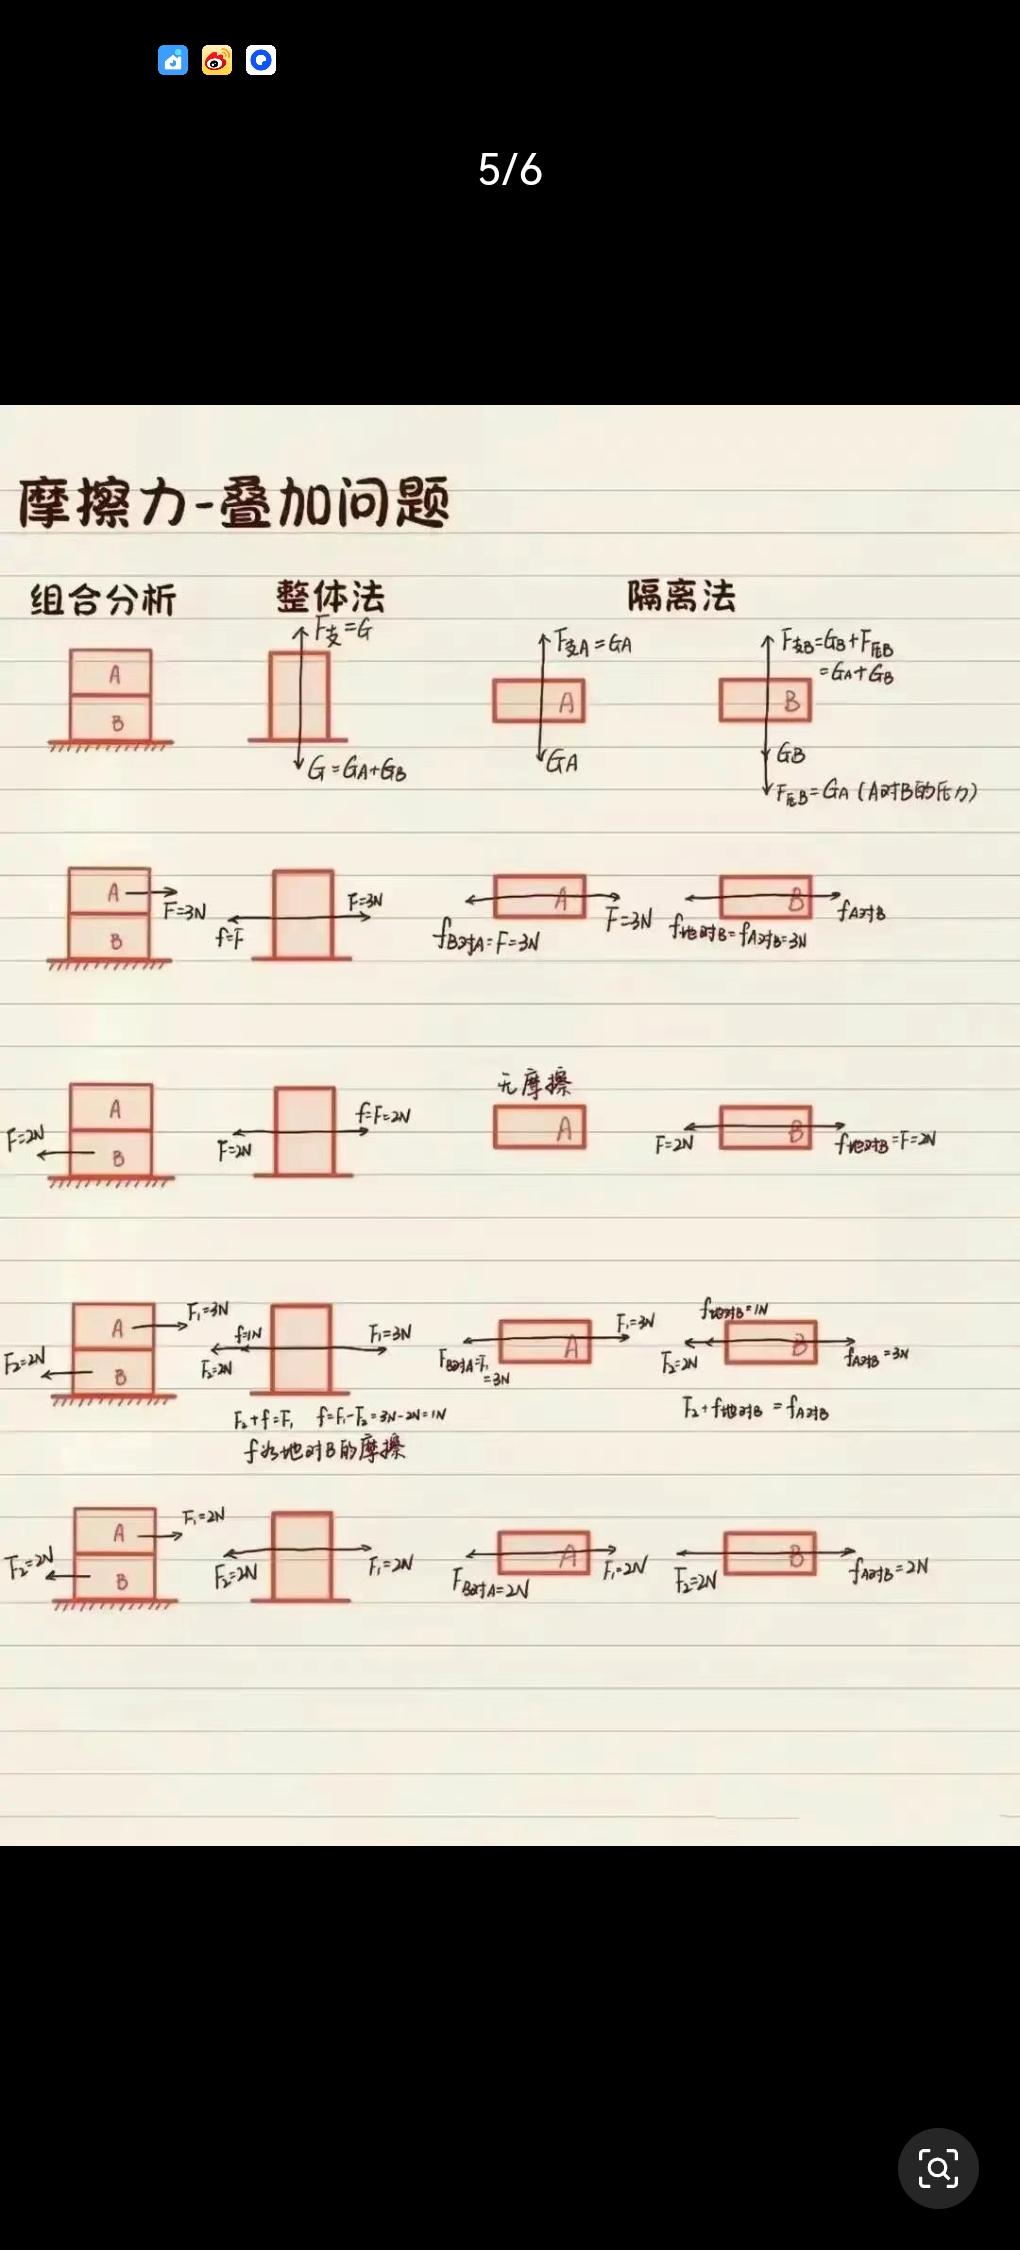 5/6
摩擦力-叠加问题
组合分析 整体法 隔离法
F支=G
F支A=GA
F支B=GB+F压B
=GA+GB
A
B
A
B
G=GA+GB
GA
GB
F压B=GA(A对B的压力)
A
F=3N
B
F=3N
f=F
A
F=3N
fB对A=F=3N
B
fA对B
f地对B=fA对B=3N
无摩擦
A
F=2N
B
f=F=2N
F=2N
A
B
F=2N
f地对B=F=2N
F1=3N
A
F2=2N
B
f=1N
F1=3N
F2=2N
F2+f=F1 f=F1-F2=3N-2N=1N
f为地对B的摩擦
F1=3N
A
FB对A=F1
=3N
f地对B=1N
B
F2=2N
fA对B=3N
F2+f地对B=fA对B
F1=2N
A
F2=2N
B
F2=2N
F1=2N
A
FB对A=2N
F1=2N
B
F2=2N
fA对B=2N